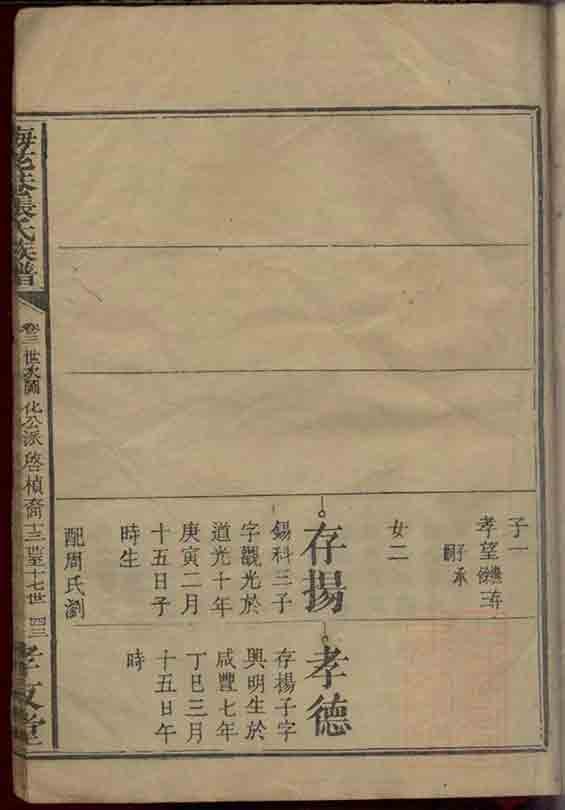 子一
孝望
子承
嗣
女二
存揚
錫科三子
字觀光於
道光十年
庚寅二月
十五日子
時生
配周氏瀏
孝德
存揚子字
興明生於
咸豐七年
丁巳三月
十五日午
時
張氏族譜
卷三 世次圖 化公派 啓楨裔 十三世至十七世